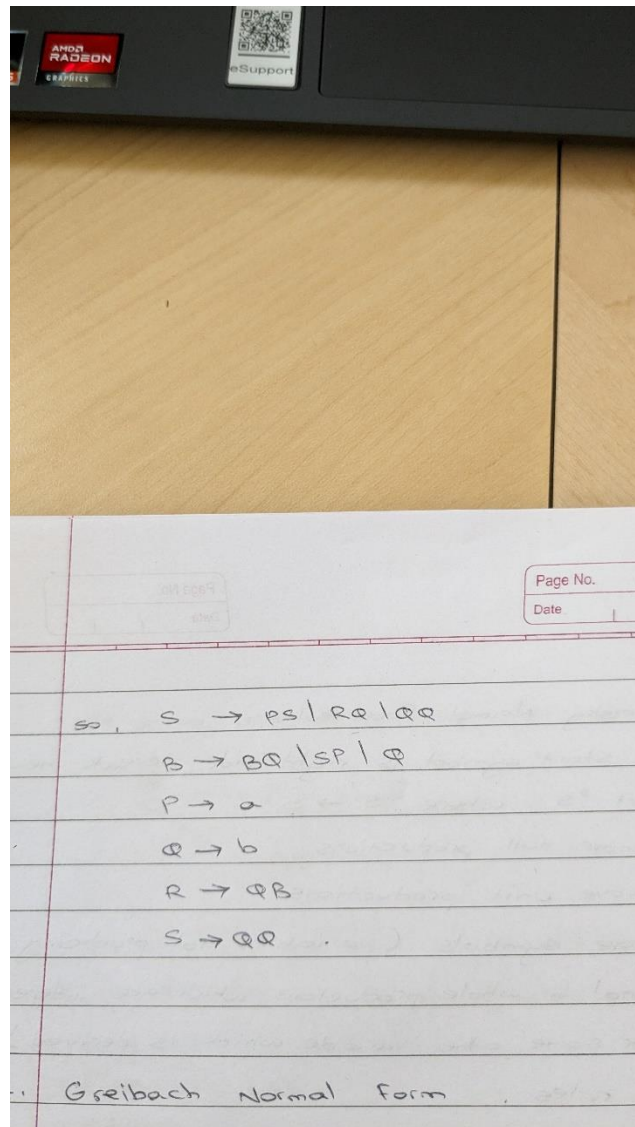 AMDA
RADEON
GRAPHICS
eSupport
Page No.
Date
so, S → PS | RQ | QQ
B → BQ | SP | Q
P → a
Q → b
R → QB
S → QQ .
Greibach Normal Form .